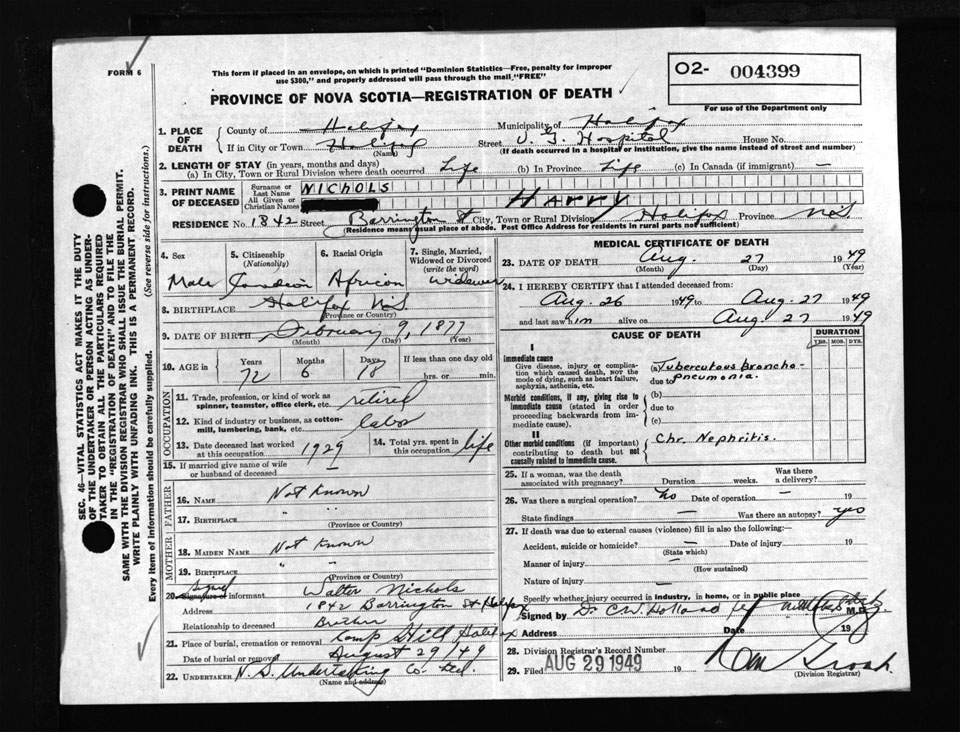 FORM 6
This form if placed in an envelope, on which is printed "Dominion Statistics—Free, penalty for improper
use $300," and properly addressed will pass through the mail "FREE"
PROVINCE OF NOVA SCOTIA—REGISTRATION OF DEATH
O2- 004399
For use of the Department only
1. PLACE OF DEATH
County of Halifax Municipality of Halifax
If in City or Town Halifax Street V. G. Hospital House No.
(Name) (If death occurred in a hospital or institution, give the name instead of street and number)
2. LENGTH OF STAY (in years, months and days)
(a) In City, Town or Rural Division where death occurred Life (b) In Province Life (c) In Canada (if immigrant) —
3. PRINT NAME OF DECEASED
Surname or Last Name NICHOLS
All Given or Christian Names HARRY
RESIDENCE No. 1842 Street Barrington St City, Town or Rural Division Halifax Province N.S
(Residence means usual place of abode. Post Office Address for residents in rural parts not sufficient)
4. Sex
Male
5. Citizenship
(Nationality)
Canadian
6. Racial Origin
African
7. Single, Married,
Widowed or Divorced
(write the word)
Widower
8. BIRTHPLACE Halifax N.S
(Province or Country)
9. DATE OF BIRTH February 9, 1877
(Month) (Day) (Year)
10. AGE in
Years Months Days If less than one day old
72 6 18 hrs. or min.
OCCUPATION
11. Trade, profession, or kind of work as
spinner, teamster, office clerk, etc. retired
12. Kind of industry or business, as cotton-
mill, lumbering, bank, etc. labor
13. Date deceased last worked
at this occupation 1929
14. Total yrs. spent in
this occupation life
15. If married give name of wife
or husband of deceased
FATHER
16. NAME Not Known
17. BIRTHPLACE " "
(Province or Country)
MOTHER
18. MAIDEN NAME Not Known
19. BIRTHPLACE " "
(Province or Country)
signed
20. Signature of informant Walter Nichols
Address 1842 Barrington St Halifax
Relationship to deceased Brother
21. Place of burial, cremation or removal Camp Hill Halifax
Date of burial or removal August 29/49
22. UNDERTAKER N. S. Undertaking Co. Ltd.
(Name and address)
MEDICAL CERTIFICATE OF DEATH
23. DATE OF DEATH Aug. 27 1949
(Month) (Day) (Year)
24. I HEREBY CERTIFY that I attended deceased from:
Aug. 26 1949 to Aug. 27 1949
and last saw him alive on Aug. 27 1949
CAUSE OF DEATH
DURATION
YRS. MOS. DYS.
I
Immediate cause
Give disease, injury or complica-
tion which caused death, NOT the
mode of dying, such as heart failure,
asphyxia, asthenia, etc.
(a) Tuberculous broncho-
due to pneumonia.
Morbid conditions, if any, giving rise to
immediate cause (stated in order
proceeding backwards from im-
mediate cause).
(b)
due to
(c)
II
Other morbid conditions (if important)
contributing to death but not
causally related to immediate cause.
Chr. Nephritis.
25. If a woman, was the death
associated with pregnancy? Duration weeks. Was there
a delivery?
26. Was there a surgical operation? no Date of operation — 19
State findings — Was there an autopsy? yes
27. If death was due to external causes (violence) fill in also the following:—
Accident, suicide or homicide? — Date of injury 19
(State which)
Manner of injury —
(How sustained)
Nature of injury —
Specify whether injury occurred in industry, in home, or in public place
Signed by Dr C.W. Holland M.D.
Address Date 19
28. Division Registrar's Record Number
29. Filed AUG 29 1949 19
(Division Registrar)
SEC. 46—VITAL STATISTICS ACT MAKES IT THE DUTY
OF THE UNDERTAKER OR PERSON ACTING AS UNDER-
TAKER TO OBTAIN ALL THE PARTICULARS REQUIRED
IN THE "REGISTRATION OF DEATH" AND TO FILE THE
SAME WITH THE DIVISION REGISTRAR WHO SHALL ISSUE THE BURIAL PERMIT.
WRITE PLAINLY WITH UNFADING INK. THIS IS A PERMANENT RECORD.
Every item of information should be carefully supplied. (See reverse side for instructions.)